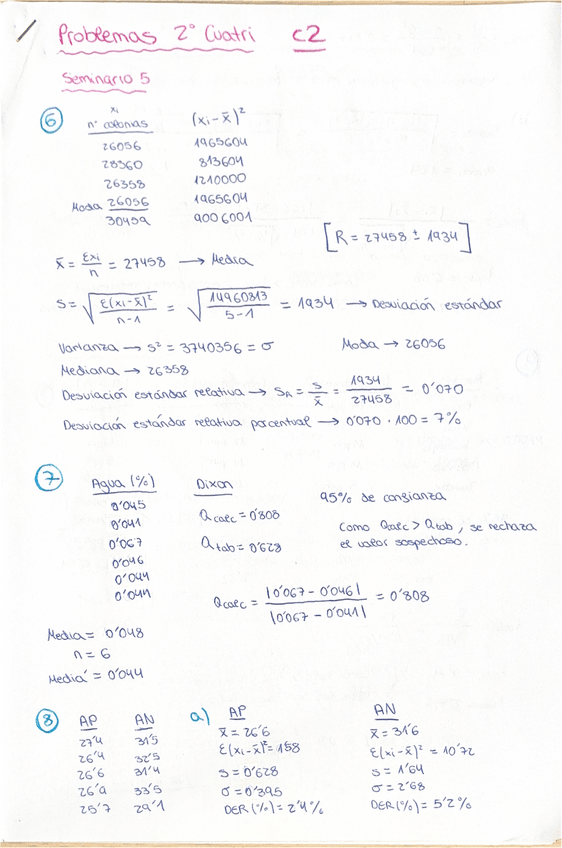 Problemas 2º Cuatri C2
Seminario 5
6
xi
nº colonias (xi - x̄)²
26056 1965604
28360 813604
26358 1210000
Moda 26056 1965604
30459 9006001
[R = 27458 ± 1934]
x̄ = Σxi / n = 27458 → Media
S = √(Σ(xi - x̄)² / n-1) = √(14960813 / 5-1) = 1934 → Desviación estándar
Varianza → s² = 3740356 = σ Moda → 26056
Mediana → 26358
Desviación estándar relativa → SR = s / x̄ = 1934 / 27458 = 0'070
Desviación estándar relativa porcentual → 0'070 · 100 = 7%
7
Agua (%) Dixon 95% de confianza
0'045
0'041
0'067
0'046
0'044
0'044
Qcalc = 0'808
Qtab = 0'628
Como Qcalc > Qtab, se rechaza
el valor sospechoso.
Qcalc = |0'067 - 0'046| / |0'067 - 0'041| = 0'808
Media = 0'048
n = 6
Media' = 0'044
8
AP AN
27'4 31'5
26'4 32'5
26'6 31'4
33'5
25'7 29'1
a)
AP
x̄ = 26'6
Σ(xi - x̄)² = 1'58
s = 0'628
σ = 0'395
DER (%) = 2'4%
AN
x̄ = 31'6
Σ(xi - x̄)² = 10'72
s = 1'64
σ = 2'68
DER (%) = 5'2%